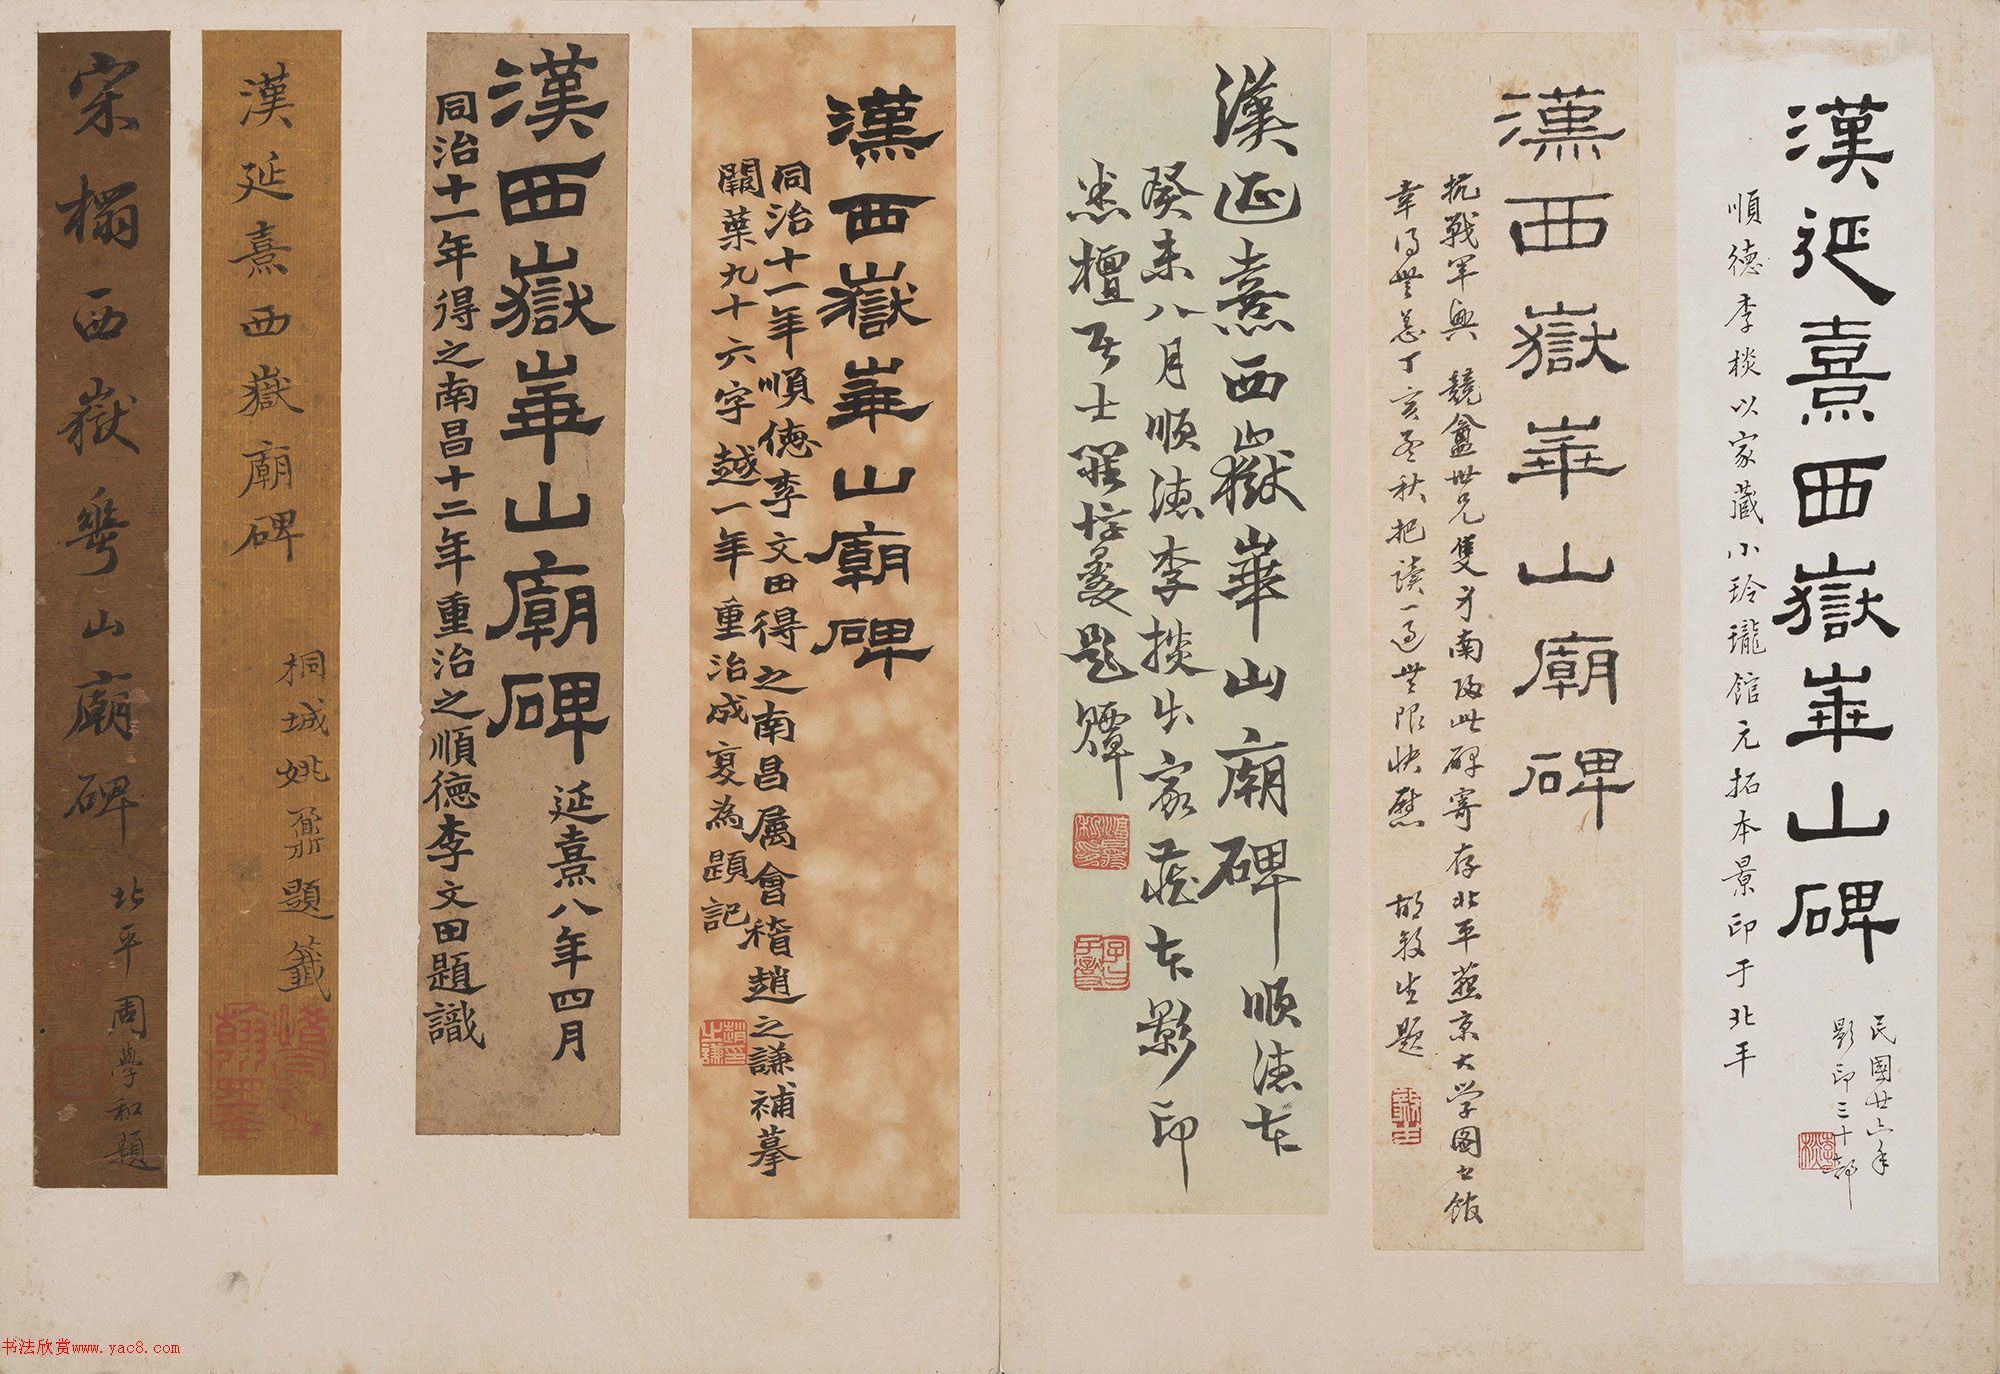 漢延熹西嶽華山碑
民國廿六年
影印三十部
順德李棪以家藏小玲瓏館元拓本景印于北平
漢西嶽華山廟碑
抗戰軍興 競盦世兄隻身南歸此碑寄存北平燕京大学圖書館
幸得無恙丁亥孟秋把讀一過無限快慰 胡毅生題
漢延熹西嶽華山廟碑 順德本
癸未八月順德李棪出家藏本影印
題
漢西嶽華山廟碑
同治十一年順德李文田得之南昌属會稽趙之謙補摹
闕葉九十六字越一年重治成夏為題記
漢西嶽華山廟碑 延熹八年四月
同治十一年得之南昌十二年重治之順德李文田題識
漢延熹西嶽廟碑
桐城姚鼐題籤
宋榻西嶽華山廟碑
北平周學和題
书法欣赏www.yac8.com